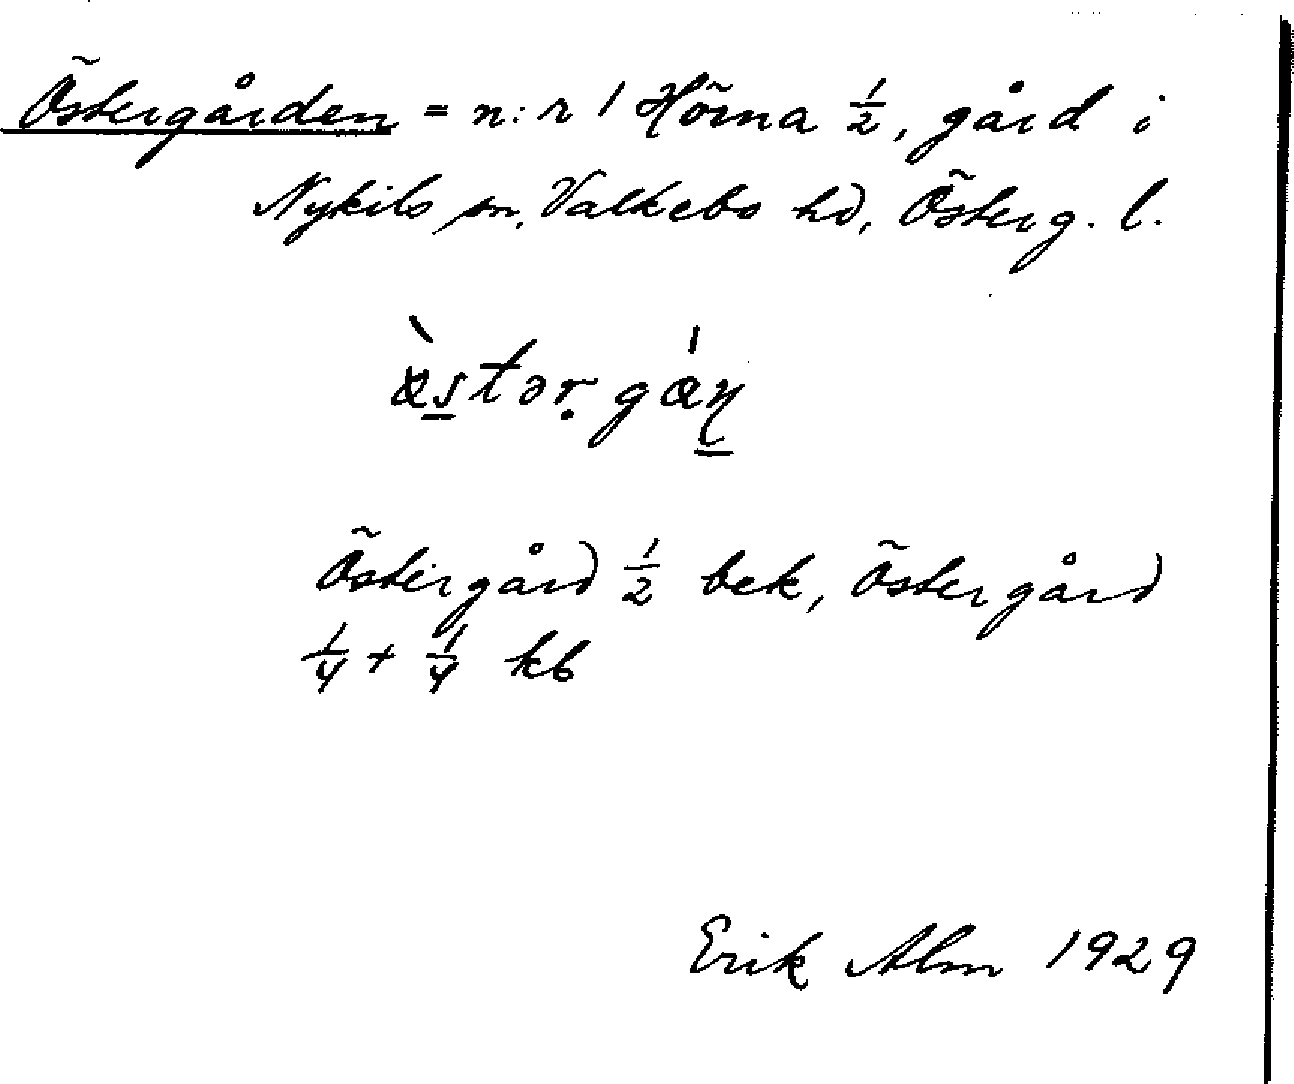 Östergården = n:r 1 Hörna ½, gård i
Nykils sn, Valkebo hd, Österg. l.
Östergård ½ bek, Östergård
¼ + ¼ kb
Erik Alm 1929